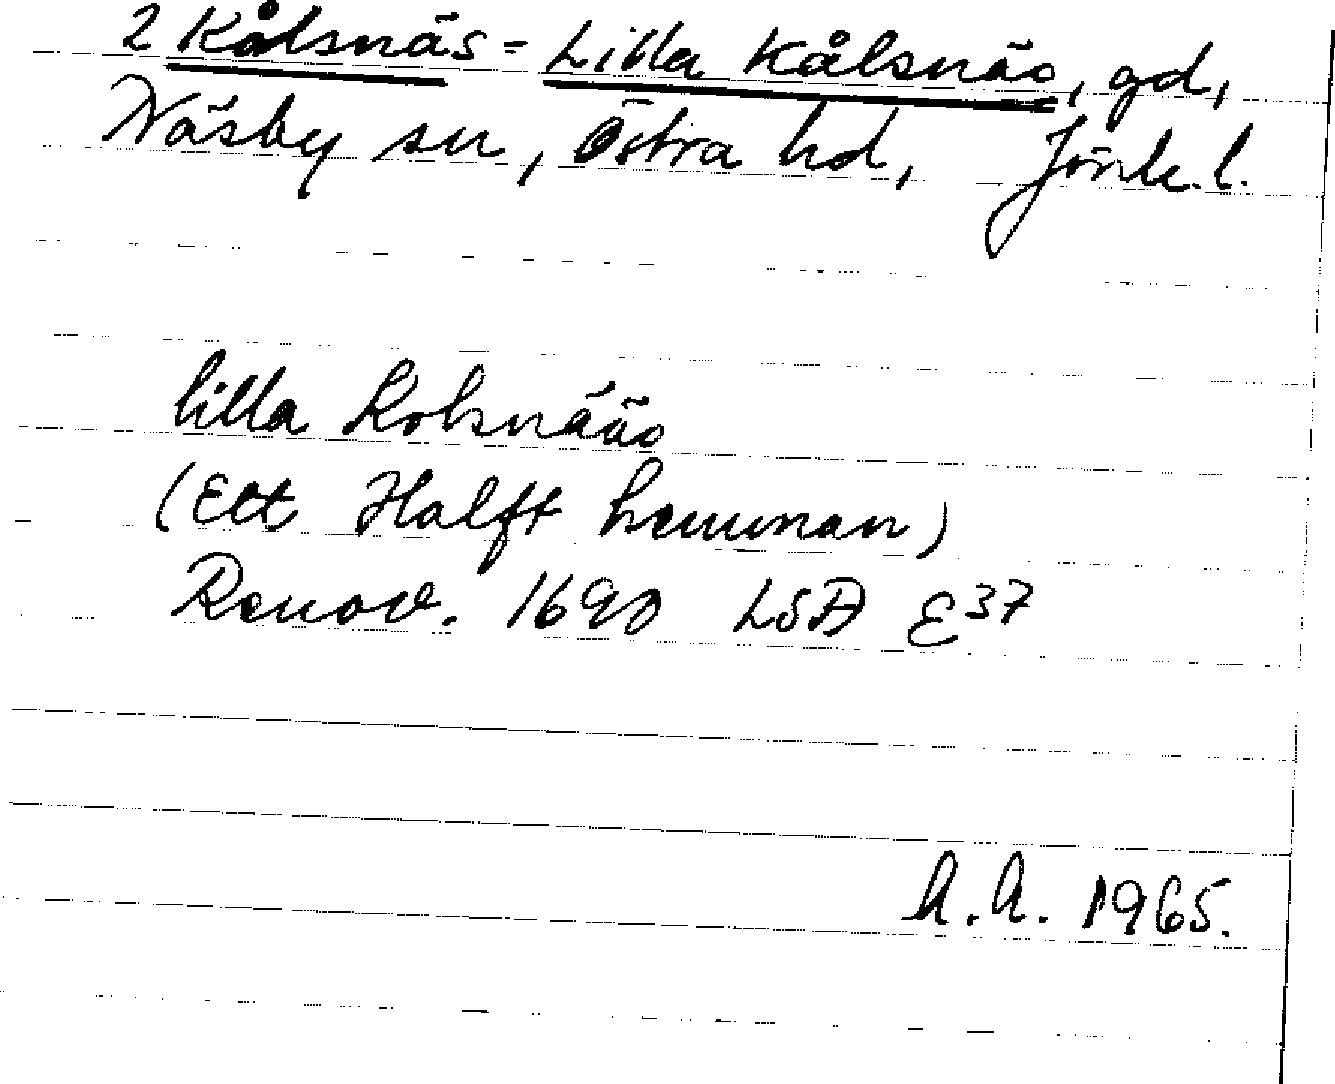 2 Kålsnäs = Lilla Kålsnäs, gd,
Näsby sn, Östra hd, Jönk. l.
lilla Kolsnääs
(Ett Halft hemman)
Renov. 1690 LSA E37
A.A. 1965.